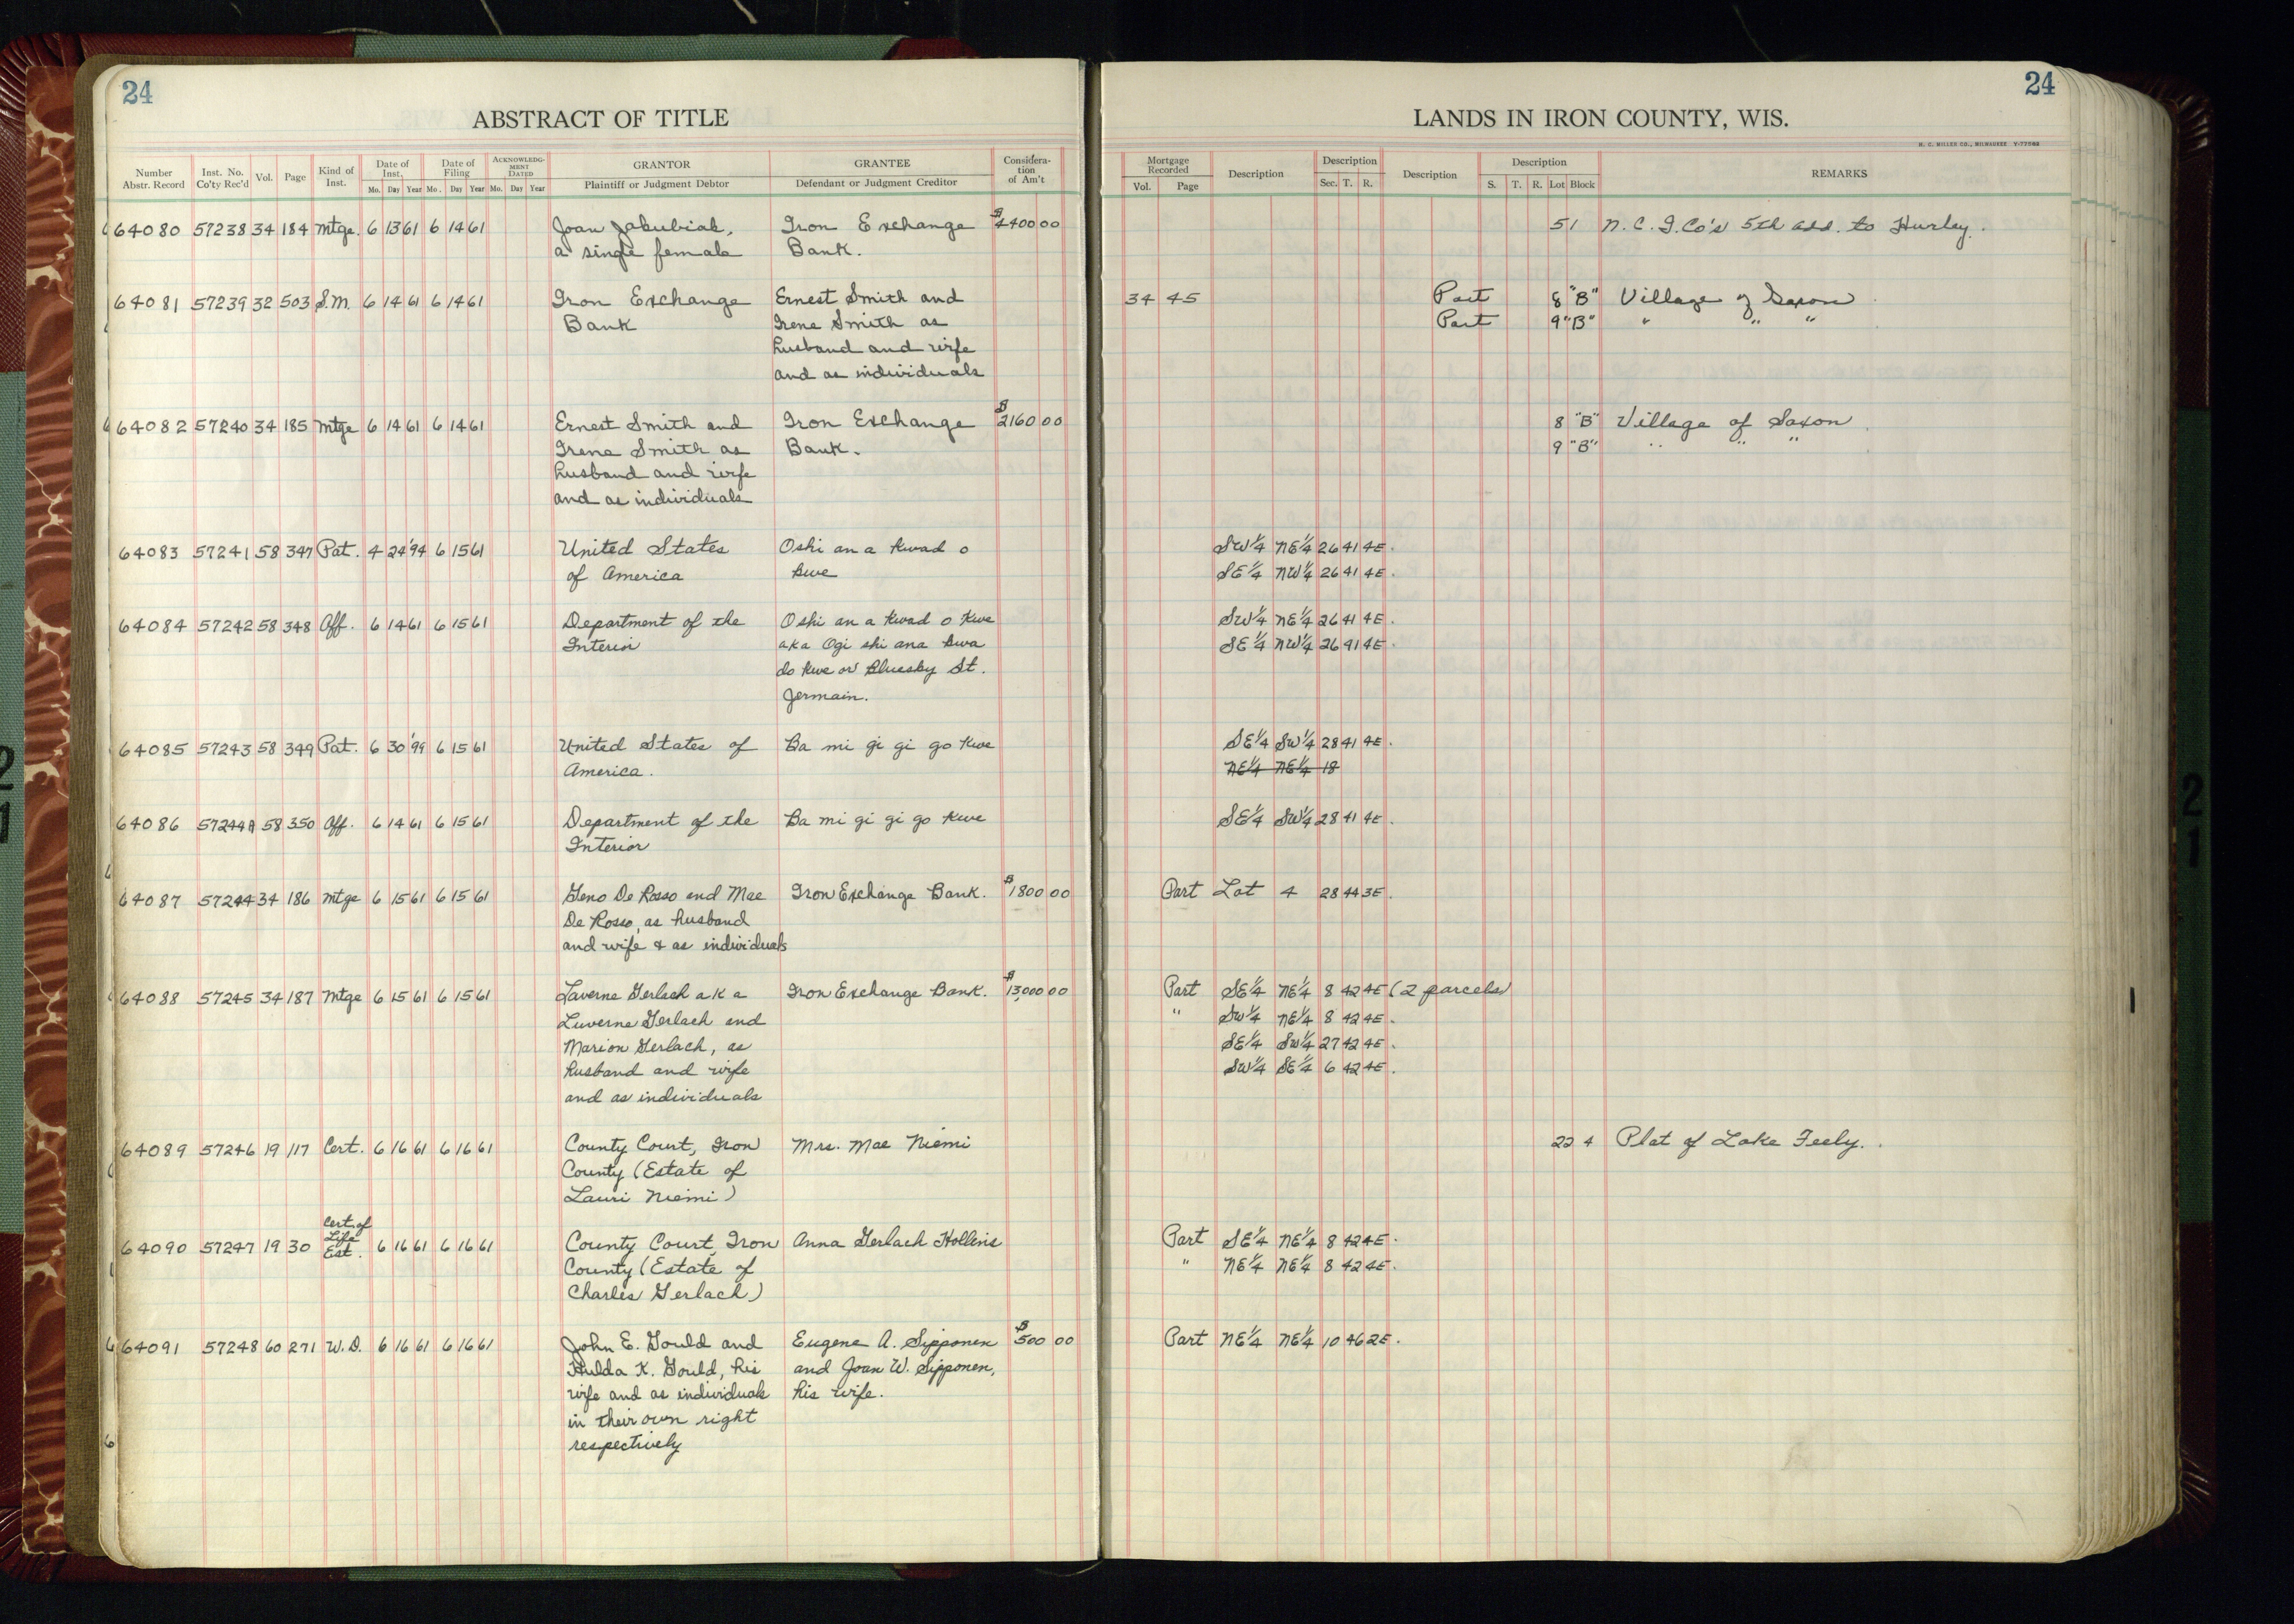 24
ABSTRACT OF TITLE
Number Abstr. Record
Inst. No. Co'ty Rec'd
Vol.
Page
Kind of Inst.
Date of Inst. Mo. Day Year
Date of Filing Mo. Day Year
ACKNOWLEDGMENT DATED Mo. Day Year
GRANTOR Plaintiff or Judgment Debtor
GRANTEE Defendant or Judgment Creditor
Consideration of Am't
64080 57238 34 184 Mtge. 6 13 61 6 14 61 Joan Jakubiak, Iron Exchange $4400 00
a single female Bank.
64081 57239 32 503 S.M. 6 14 61 6 14 61 Iron Exchange Ernest Smith and
Bank Irene Smith as
husband and wife
and as individuals
64082 57240 34 185 Mtge 6 14 61 6 14 61 Ernest Smith and Iron Exchange $2160 00
Irene Smith as Bank.
husband and wife
and as individuals
64083 57241 58 347 Pat. 4 24 '94 6 15 61 United States Oshi an a kwad o
of America kwe
64084 57242 58 348 Aff. 6 14 61 6 15 61 Department of the Oshi an a kwad o kwe
Interior aka Ogi shi ana kwa
do kwe or Bluesky St.
Jermain.
64085 57243 58 349 Pat. 6 30 '99 6 15 61 United States of Ba mi gi gi go kwe
America.
64086 57244A 58 350 Aff. 6 14 61 6 15 61 Department of the Ba mi gi gi go kwe
Interior
64087 57244 34 186 Mtge 6 15 61 6 15 61 Geno De Rosso and Mae Iron Exchange Bank. $1800 00
De Rosso, as husband
and wife & as individuals
64088 57245 34 187 Mtge 6 15 61 6 15 61 Laverne Gerlach a k a Iron Exchange Bank. $13,000 00
Luverne Gerlach and
Marion Gerlach, as
husband and wife
and as individuals
64089 57246 19 117 Cert. 6 16 61 6 16 61 County Court, Iron Mrs. Mae Niemi
County (Estate of
Lauri Niemi)
64090 57247 19 30 Cert. of Life Est. 6 16 61 6 16 61 County Court, Iron Anna Gerlach Hollins
County (Estate of
Charles Gerlach)
64091 57248 60 271 W.D. 6 16 61 6 16 61 John E. Gould and Eugene A. Sipponen $500 00
Hulda K. Gould, his and Joan W. Sipponen,
wife and as individuals his wife.
in their own right
respectively
24
LANDS IN IRON COUNTY, WIS.
H. C. MILLER CO., MILWAUKEE
Mortgage Recorded Vol. Page
Description
Description Sec. T. R.
Description
Description S. T. R. Lot Block
REMARKS
5 1 N.C.I.Co's 5th add. to Hurley.
34 45 Part 8 "B" Village of Saxon
Part 9 "B" " " "
8 "B" Village of Saxon
9 "B" " " "
SW¼ NE¼ 26 41 4E.
SE¼ NW¼ 26 41 4E.
SW¼ NE¼ 26 41 4E.
SE¼ NW¼ 26 41 4E.
SE¼ SW¼ 28 41 4E.
NE¼ NE¼ 18
SE¼ SW¼ 28 41 4E.
Part Lot 4 28 44 3E.
Part SE¼ NE¼ 8 42 4E (2 parcels)
" SW¼ NE¼ 8 42 4E.
SE¼ SW¼ 27 42 4E.
SW¼ SE¼ 6 42 4E.
22 4 Plat of Lake Feely.
Part SE¼ NE¼ 8 42 4E.
" NE¼ NE¼ 8 42 4E.
Part NE¼ NE¼ 10 46 2E.